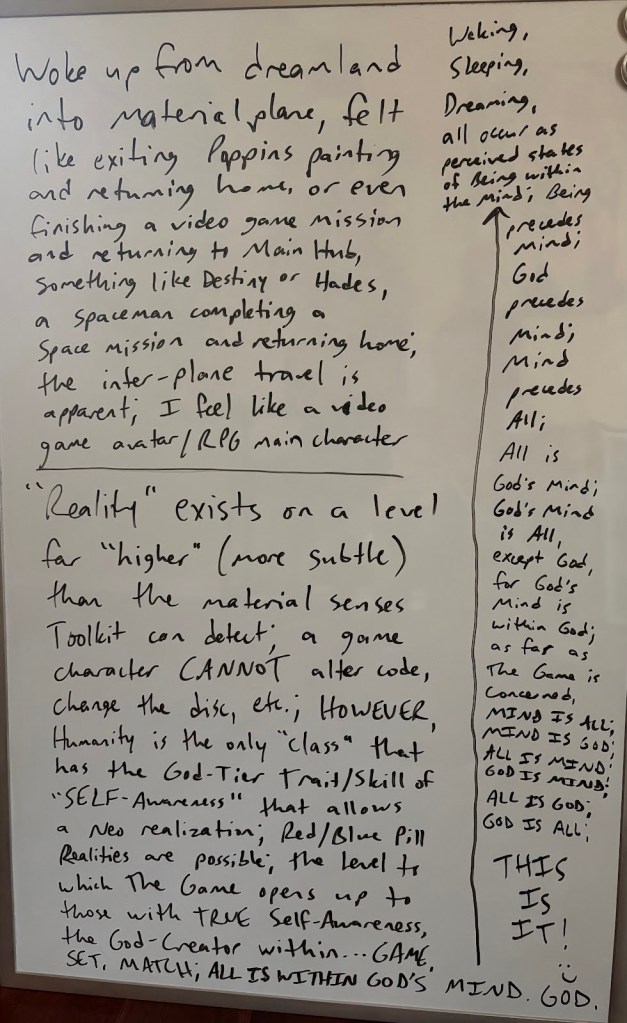 Woke up from dreamland
into material plane, felt
like exiting Poppins painting
and returning home, or even
finishing a video game mission
and returning to Main Hub,
something like Destiny or Hades,
a spaceman completing a
space mission and returning home;
the inter-plane travel is
apparent; I feel like a video
game avatar/RPG main character
"Reality" exists on a level
far "higher" (more subtle)
than the material senses
Toolkit can detect; a game
character CANNOT alter code,
change the disc, etc.; HOWEVER,
Humanity is the only "class" that
has the God-Tier Trait/Skill of
"SELF-Awareness" that allows
a Neo realization; Red/Blue Pill
Realities are possible; the level to
which The Game opens up to
those with TRUE Self-Awareness,
the God-Creator within... GAME,
SET, MATCH; ALL IS WITHIN GOD'S MIND. GOD.
Waking,
Sleeping,
Dreaming,
all occur as
perceived states
of Being within
the Mind; Being
precedes
Mind;
God
precedes
Mind;
Mind
precedes
All;
All is
God's Mind;
God's Mind
is All,
except God,
for God's
Mind is
within God;
as far as
The Game is
Concerned,
MIND IS ALL;
MIND IS GOD;
ALL IS MIND!
GOD IS MIND!
ALL IS GOD;
GOD IS ALL;
THIS
IS
IT!
:)